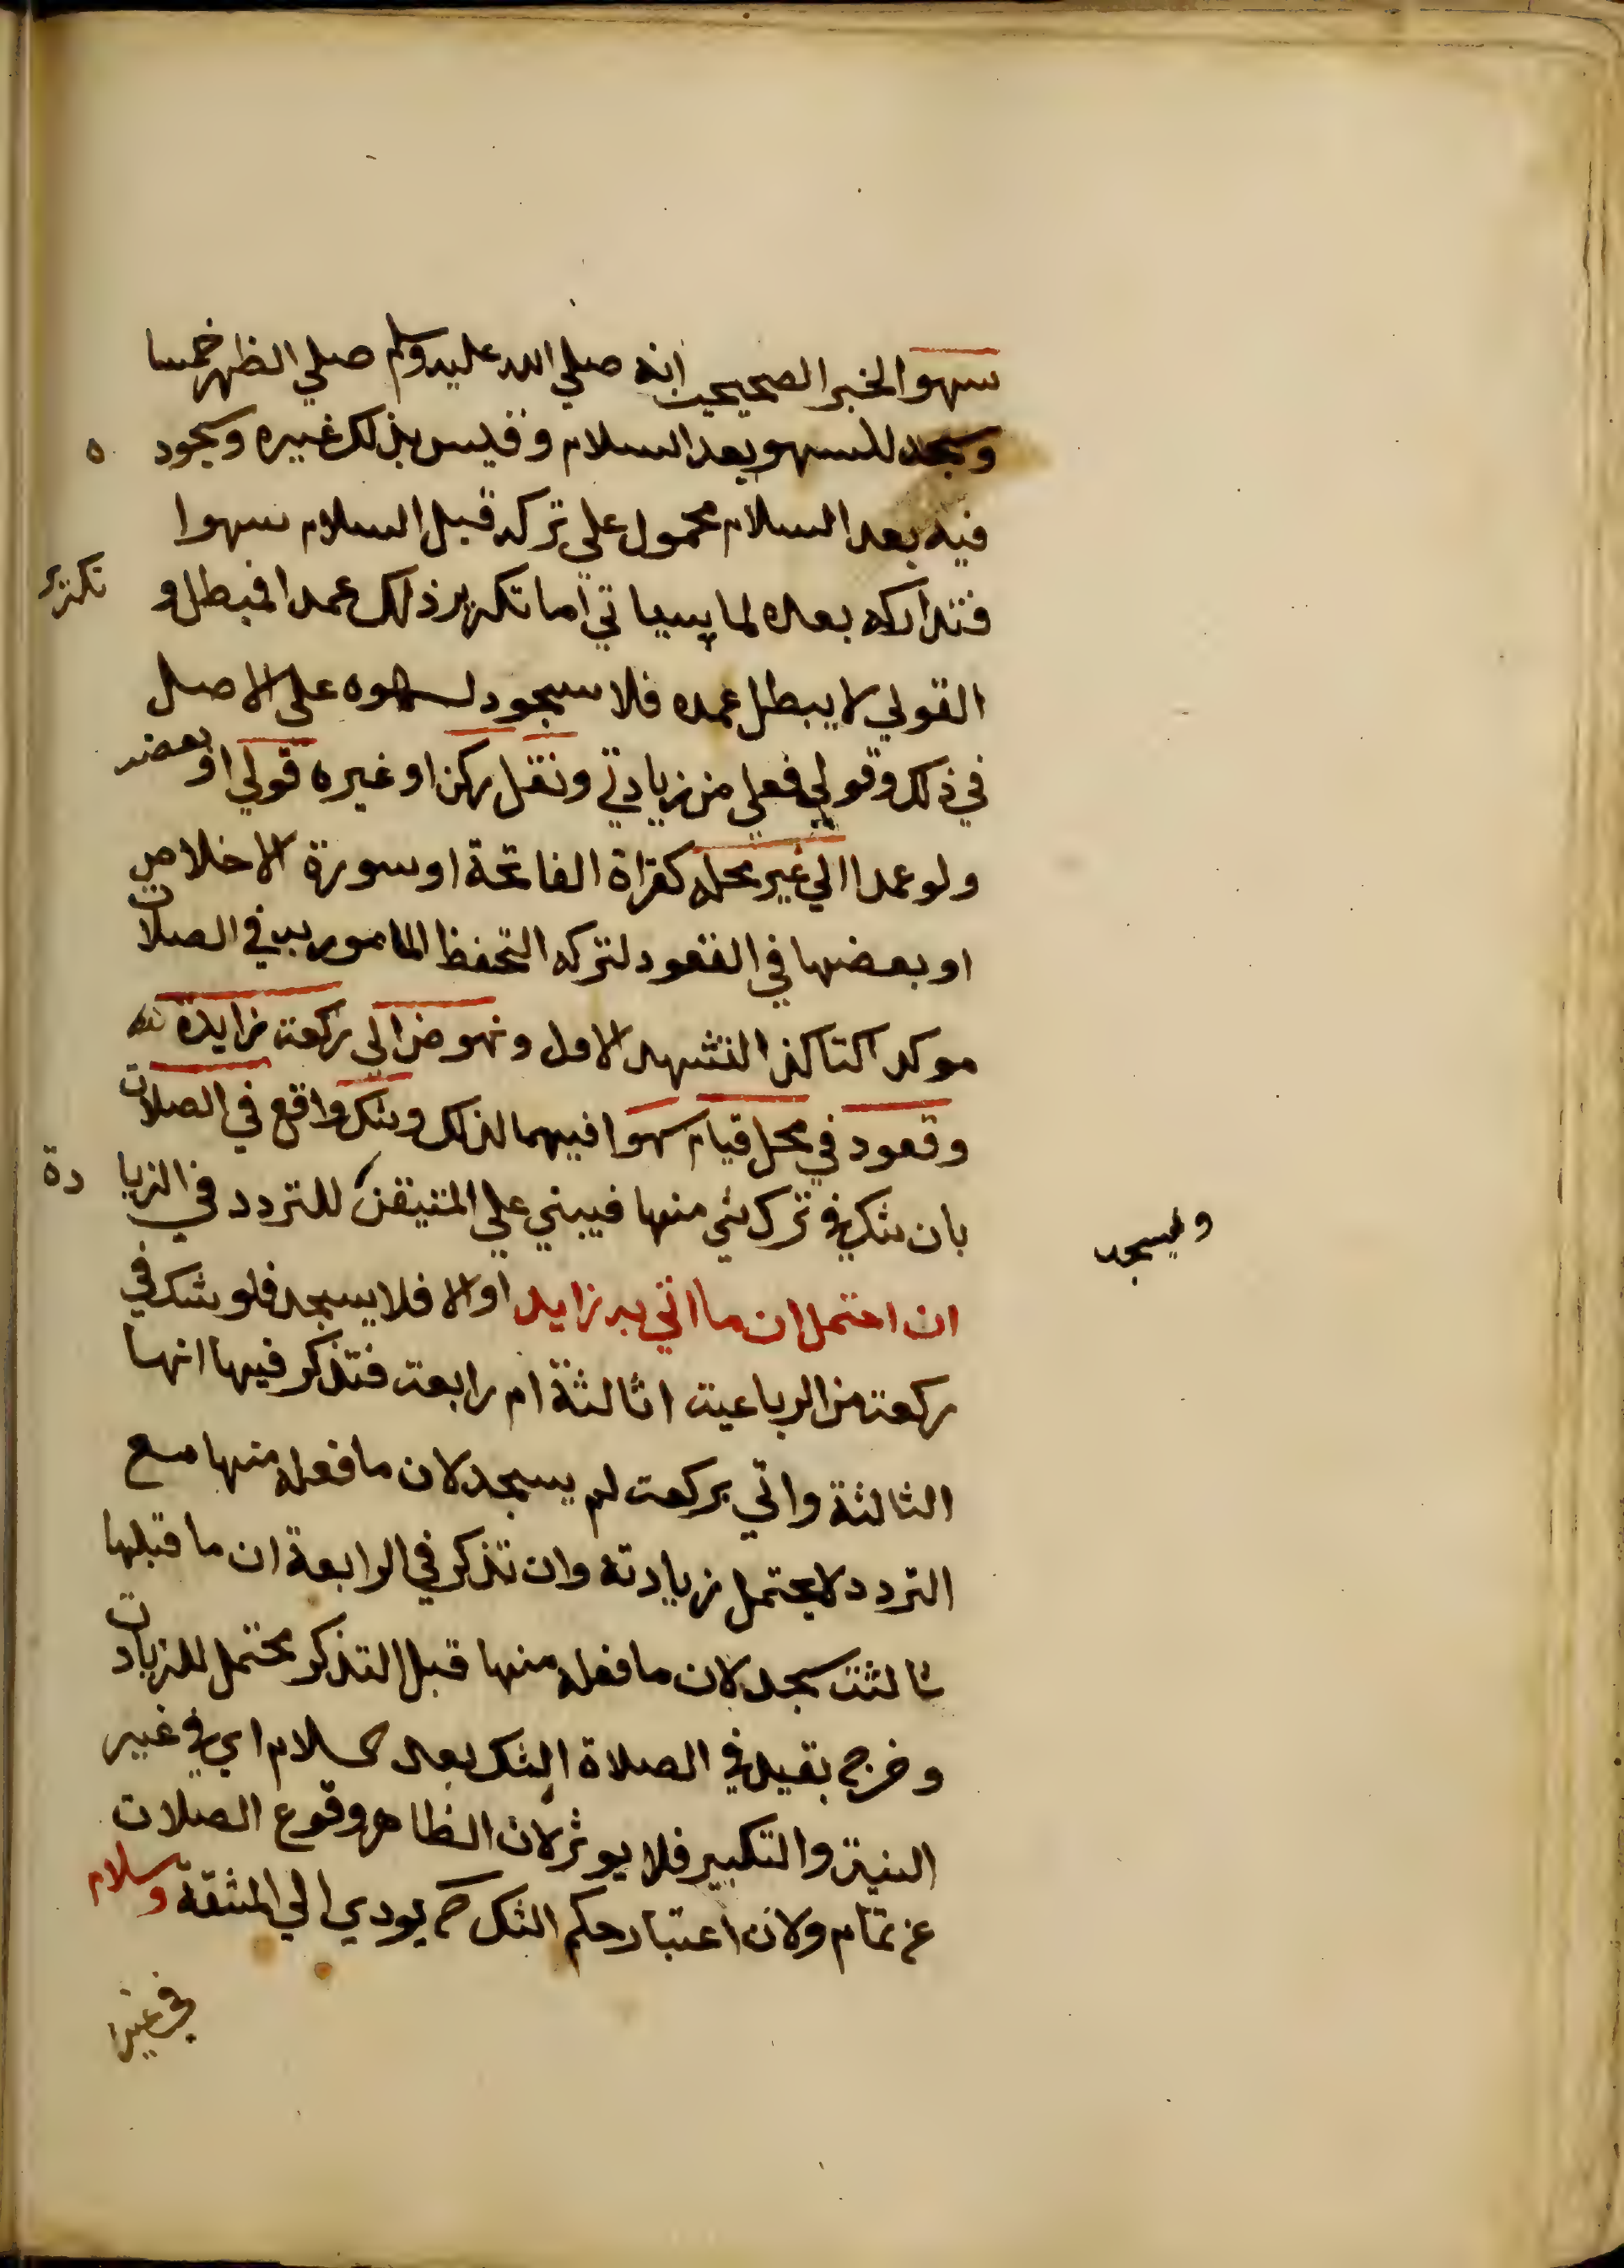 سهوا لخبر الصحيحين انه صلي الله عليه وسلم صلي الظهر خمسا
وسجد للسهو بعد السلام وقيس بذلك غيره وسجوده
فيه بعد السلام محمول علي تركه قبل السلام سهوا
فتداركه بعده لما سياتي اما تكرير ذلك عمدا فمبطل و تكرير
القولي لا يبطل عمده فلا سجود لسهوه علي الاصل
في ذلك وقولي فعلي من زيادتي ونقل ركن او غيره قولي او بعضه
ولو عمدا الي غير محله كقراة الفاتحة او سورة الاخلاص
او بعضها في القعود لتركه التحفظ المامور به في الصلات
موكدا كتاكد التشهد الاول ونهوض الي ركعة زايدة
وقعود في محل قيام سهوا فيهما لذلك وشك واقع في الصلات
بان شك في ترك شي منها فيبني علي المتيقن للتردد في الزيادة
ويسجد
ان احتمل ان ما اتي به زايد او لا فلا يسجد فلو شك في
ركعة من الرباعية اثالثة ام رابعة فتذكر فيها انها
الثالثة واتي بركعة لم يسجد لان ما فعله منها مع
التردد لا يحتمل زيادته وان تذكر في الرابعة ان ما قبلها
ثالثة سجد لان ما فعله منها قبل التذكر محتمل للزيادت
وخرج بقيد في الصلاة الشك بعد السلام اي في غير
النية والتكبير فلا يوثر لان الظاهر وقوع الصلات
عن تمام ولان اعتبار حكم الشك ح يودي الي المشقة وسلام
في غير